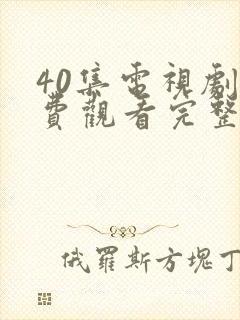 40集電視劇
費觀看完整
俄羅斯方塊丁